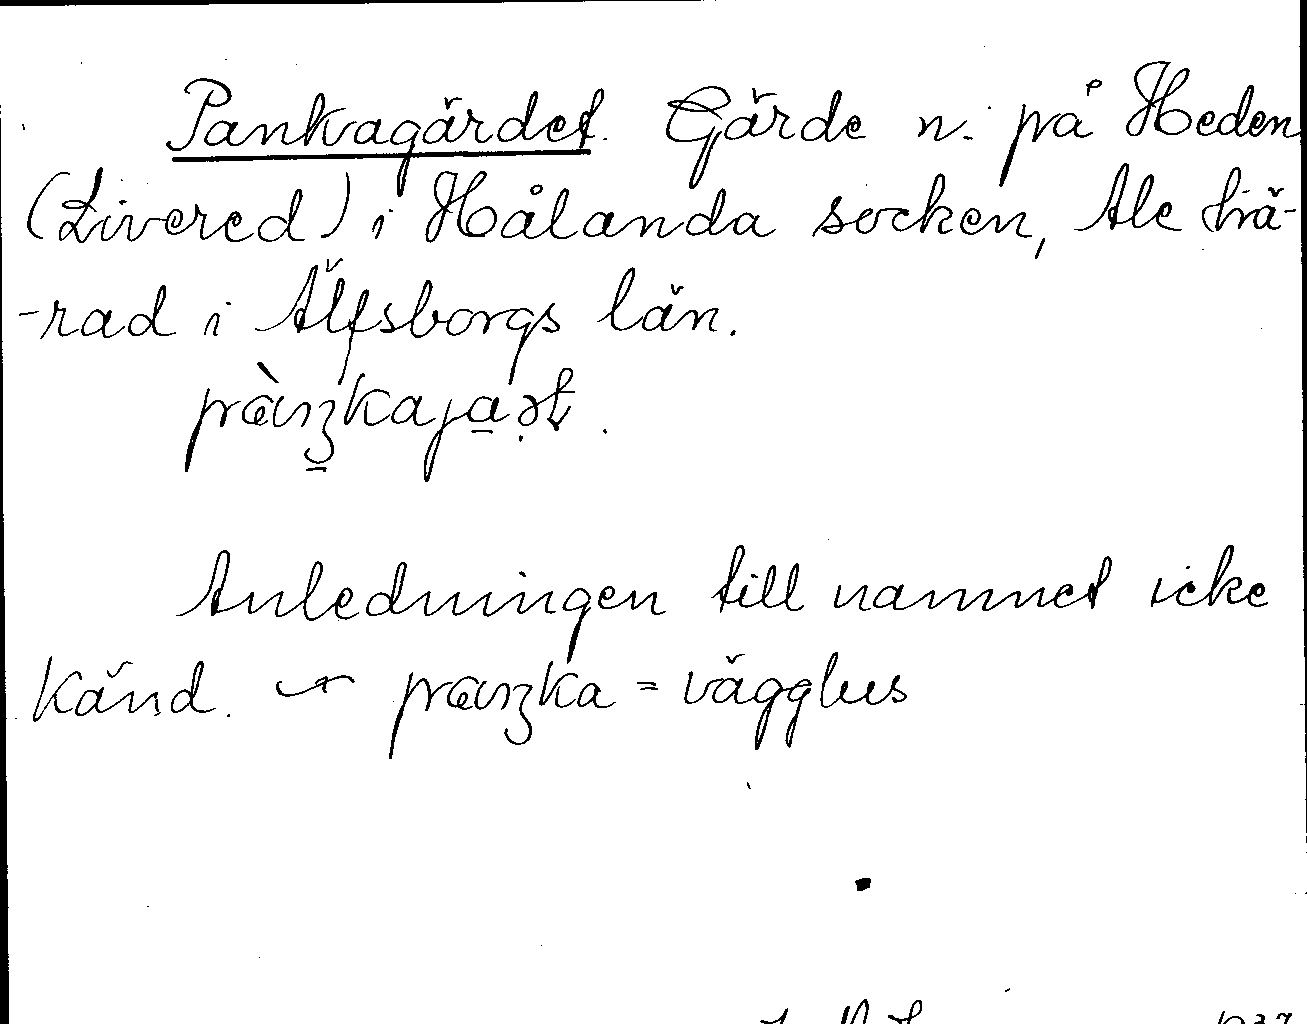 Pankagärdet. Gärde n. på Heden
(Livered) i Hålanda socken, Ale hä-
-rad i Älfsborgs län.
Anledningen till namnet icke
känd. = vägglus